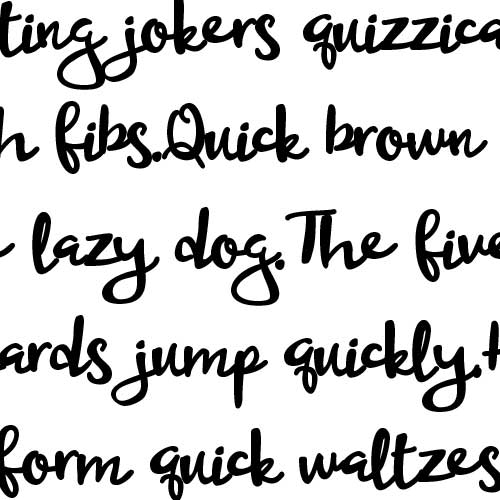 ting jokers quizzica
h fibs.Quick brown
lazy dog.The five
ards jump quickly.H
form quick waltzes